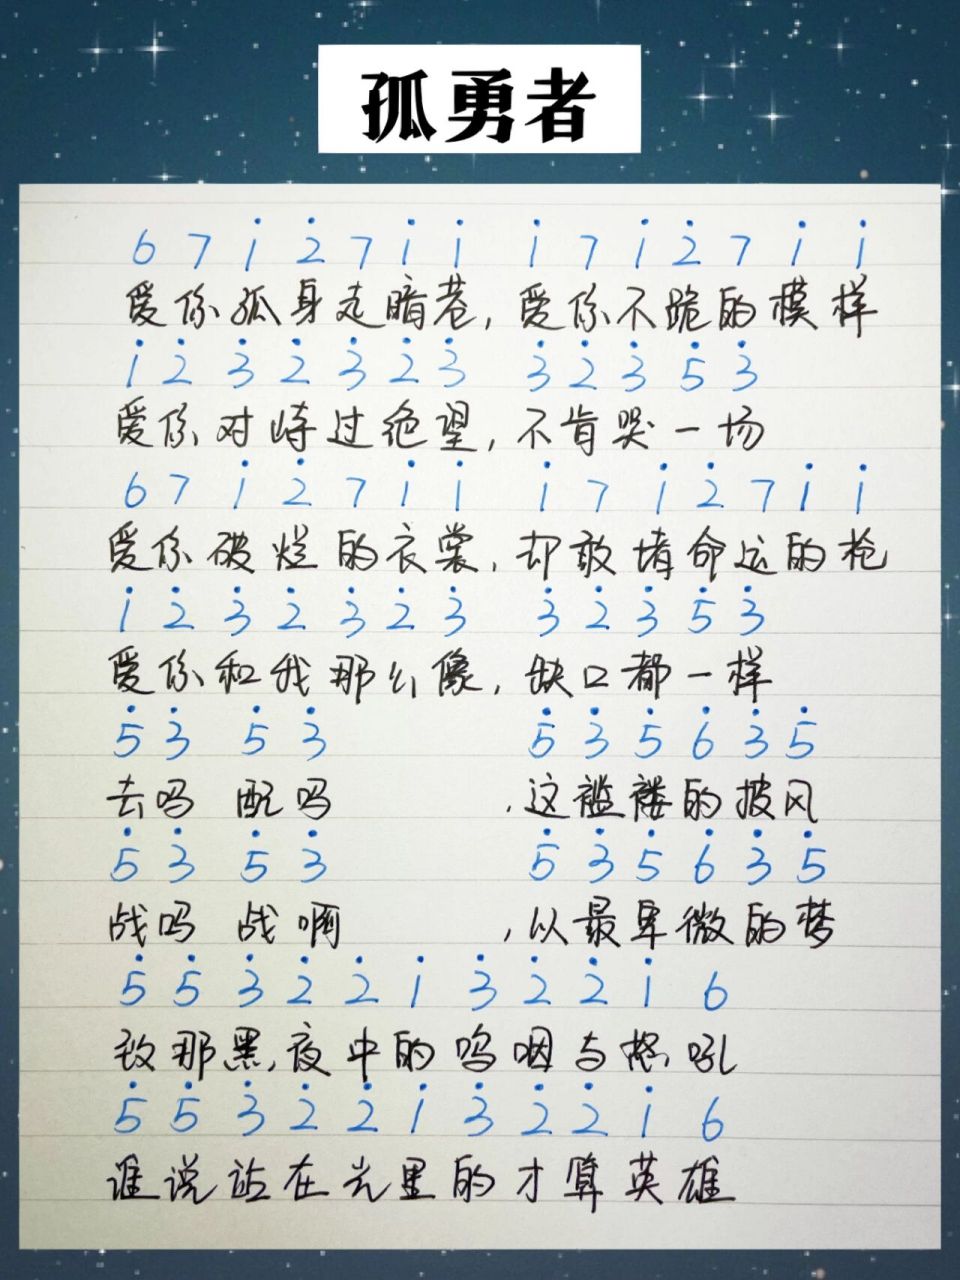 孤勇者
6 7 1̇ 2̇ 7 1̇ 1̇ 1̇ 7 1̇ 2̇ 7 1̇ 1̇
爱你孤身走暗巷,爱你不跪的模样
1̇ 2̇ 3̇ 2̇ 3̇ 2̇ 3̇ 3̇ 2̇ 3̇ 5̇ 3̇
爱你对峙过绝望,不肯哭一场
6 7 1̇ 2̇ 7 1̇ 1̇ 1̇ 7 1̇ 2̇ 7 1̇ 1̇
爱你破烂的衣裳,却敢堵命运的枪
1̇ 2̇ 3̇ 2̇ 3̇ 2̇ 3̇ 3̇ 2̇ 3̇ 5̇ 3̇
爱你和我那么像,缺口都一样
5̇ 3̇ 5̇ 3̇ 5̇ 3̇ 5̇ 6̇ 3̇ 5̇
去吗 配吗 ,这褴褛的披风
5̇ 3̇ 5̇ 3̇ 5̇ 3̇ 5̇ 6̇ 3̇ 5̇
战吗 战啊 ,以最卑微的梦
5̇ 5̇ 3̇ 2̇ 2̇ 1̇ 3̇ 2̇ 2̇ 1̇ 6
致那黑夜中的呜咽与怒吼
5̇ 5̇ 3̇ 2̇ 2̇ 1̇ 3̇ 2̇ 2̇ 1̇ 6
谁说站在光里的才算英雄